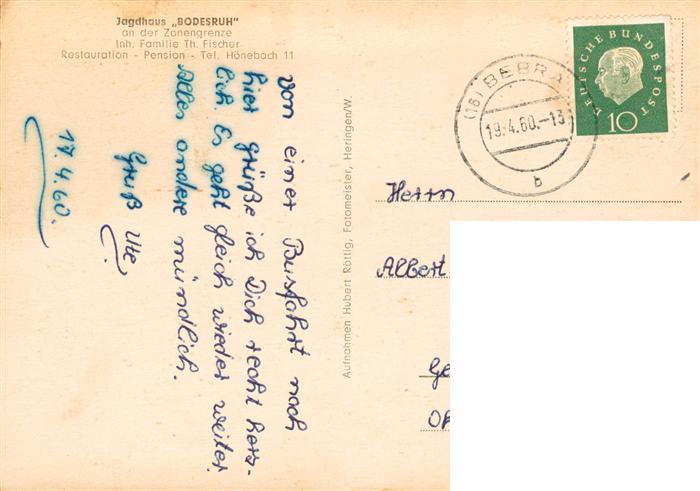 Jagdhaus „BODESRUH"
an der Zonengrenze
Inh. Familie Th. Fischer
Restauration - Pension - Tel. Hönebach 11
Von einer Busfahrt nach
hier grüße ich Dich recht herz-
lich. Es geht gleich wieder weiter.
Alles andere mündlich.
Gruß Ute
17.4.60.
Aufnahmen Hubert Röttig, Fotomeister, Heringen/W.
(16) BEBRA
19.4.60.-13
b
DEUTSCHE BUNDESPOST
10
Herrn
Albert